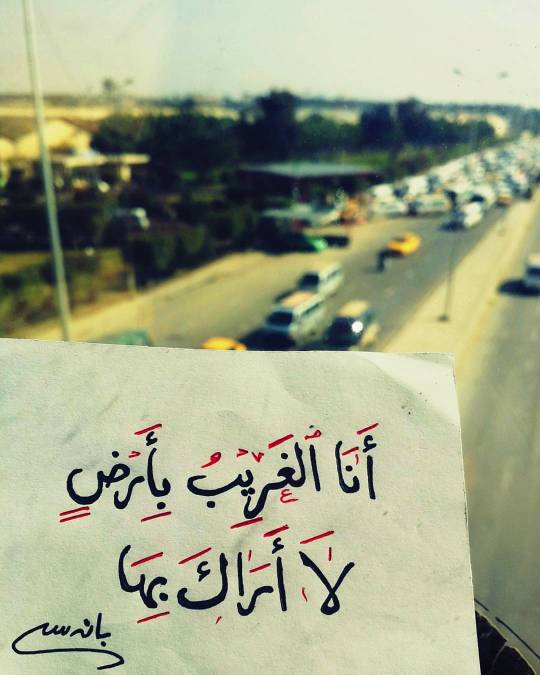 أَنَا ٱلْغَرِيْبُ بِأَرْضٍ
لَا أَرَاكَ بِهَا
بانه سه